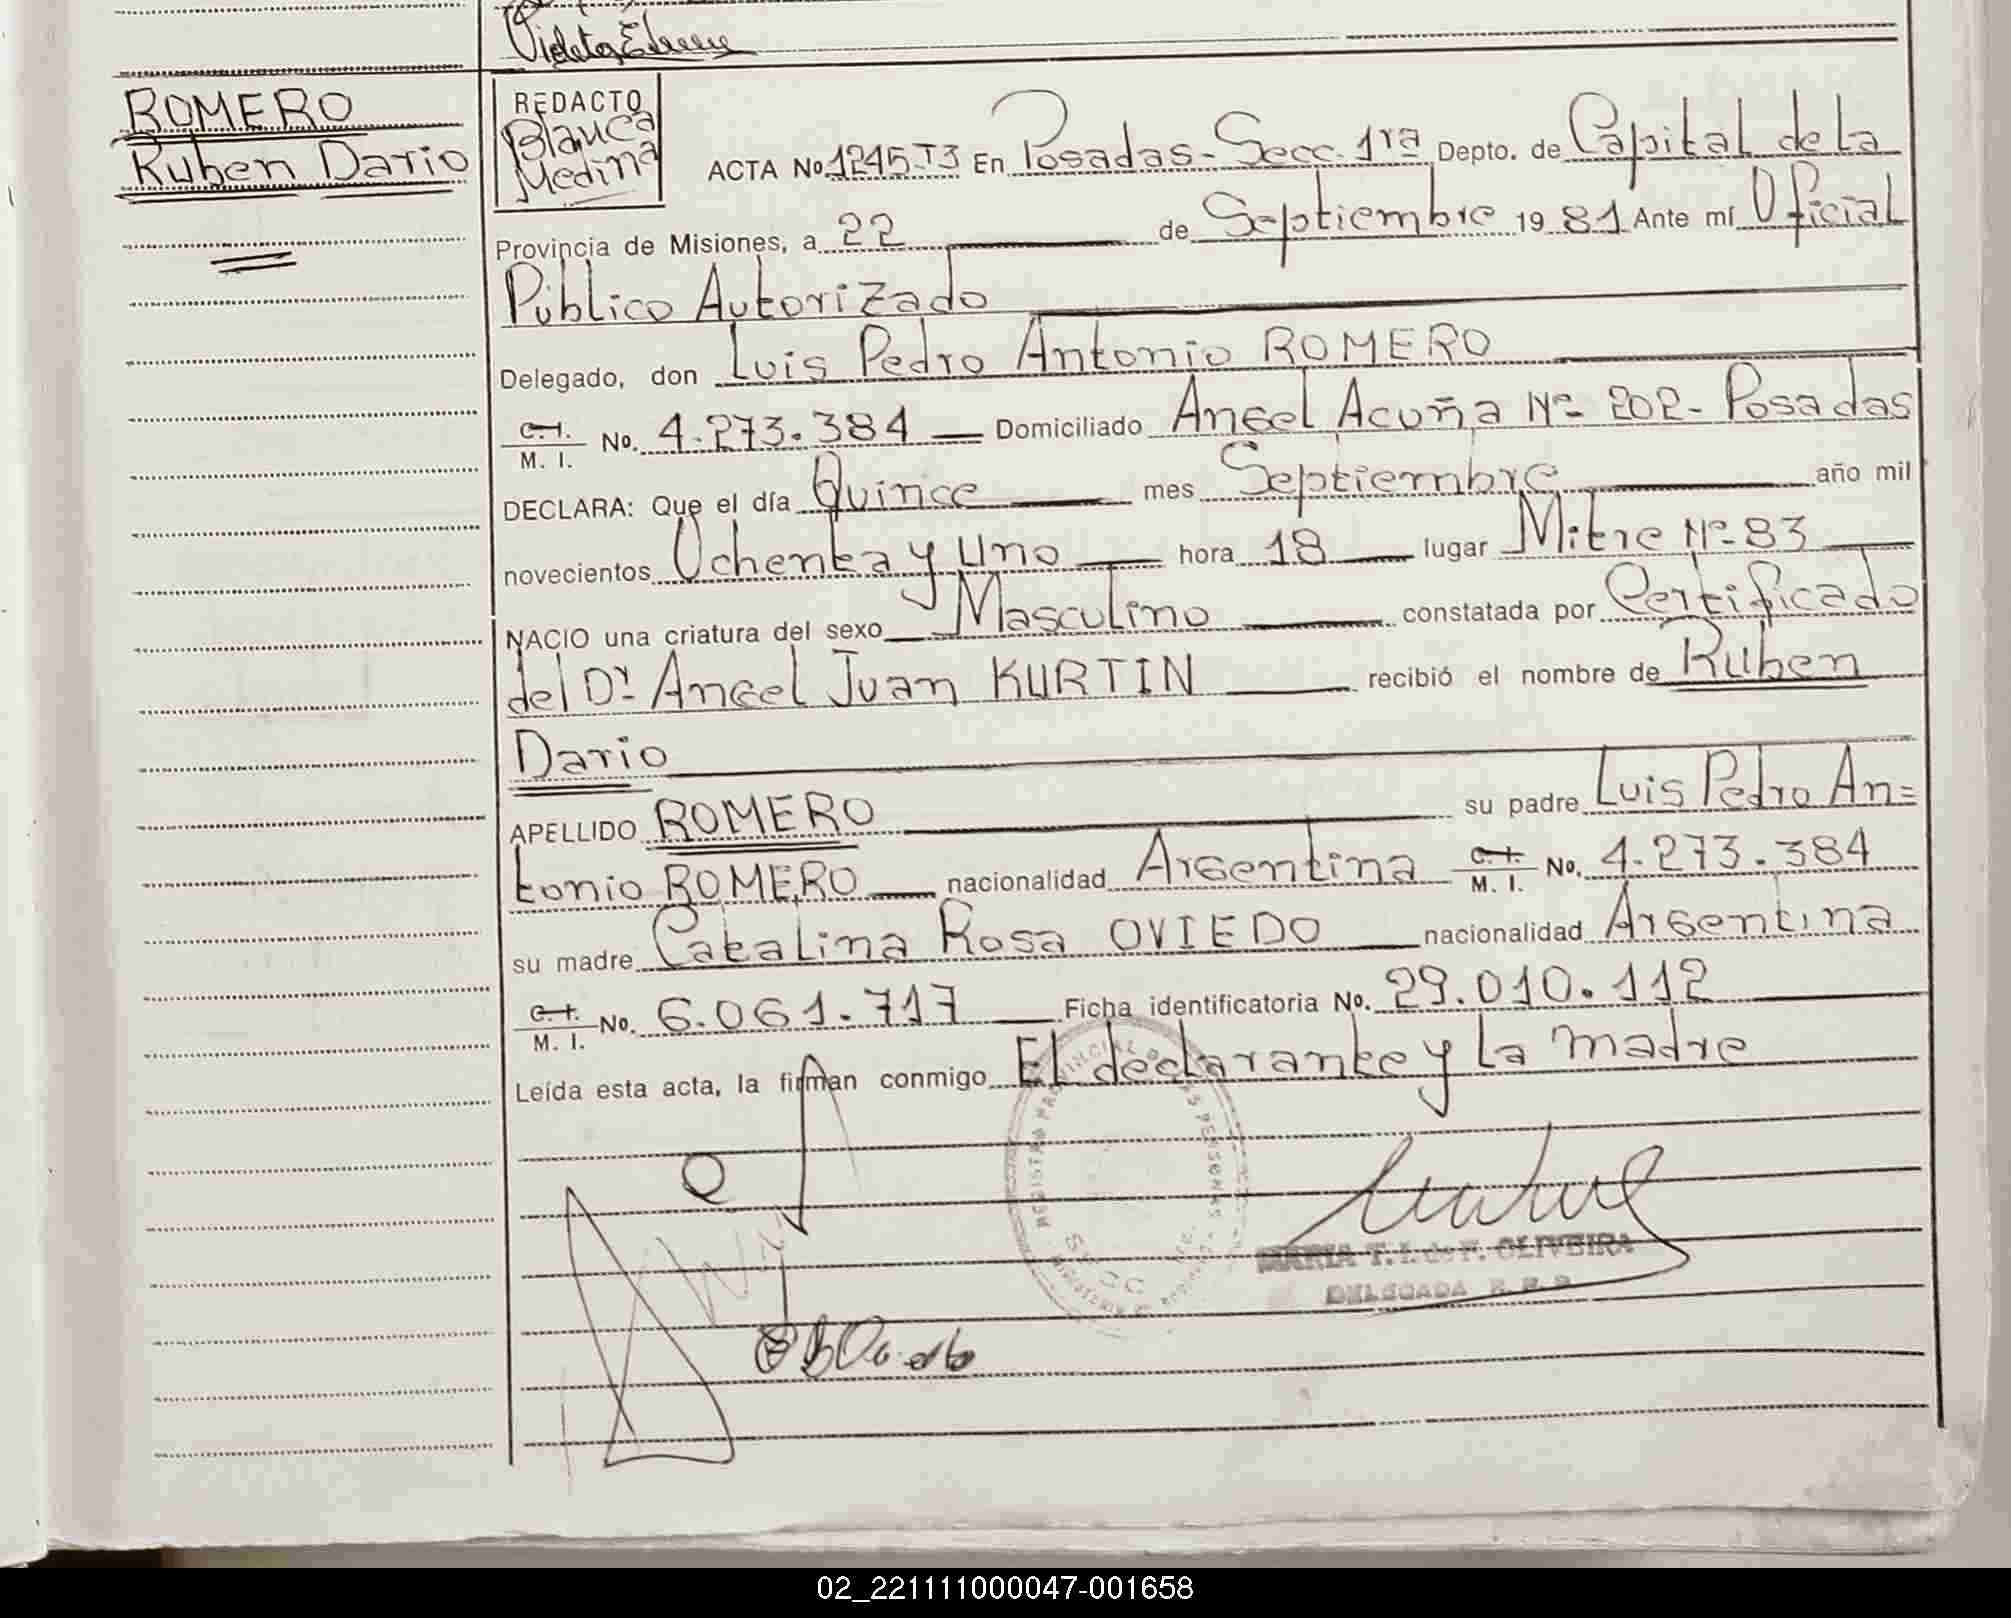 Violeta
ROMERO
Ruben Dario
REDACTO
Blanca
Medina
ACTA No. 1245 T3 En Posadas - Secc. 1ra Depto. de Capital de La
Provincia de Misiones, a 22 de Septiembre 1981 Ante mí Oficial
Público Autorizado
Delegado, don Luis Pedro Antonio ROMERO
C. I.
M. I. No. 4.273.384 Domiciliado Angel Acuña Nº 202 - Posadas
DECLARA: Que el día Quince mes Septiembre año mil
novecientos Ochenta y Uno hora 18 lugar Mitre Nº 83
NACIO una criatura del sexo Masculino constatada por Certificado
del Dr. Angel Juan KURTIN recibió el nombre de Ruben
Dario
APELLIDO ROMERO su padre Luis Pedro An=
tonio ROMERO nacionalidad Argentina C. I. M. I. No. 4.273.384
su madre Catalina Rosa OVIEDO nacionalidad Argentina
C. I.
M. I. No. 6.061.717 Ficha identificatoria No. 29.010.112
Leída esta acta, la firman conmigo El declarante y La madre
REGISTRO PROVINCIAL DE LAS PERSONAS
MARIA T. I. de F. OLIVEIRA
DELEGADA R. P. P.
02_221111000047-001658